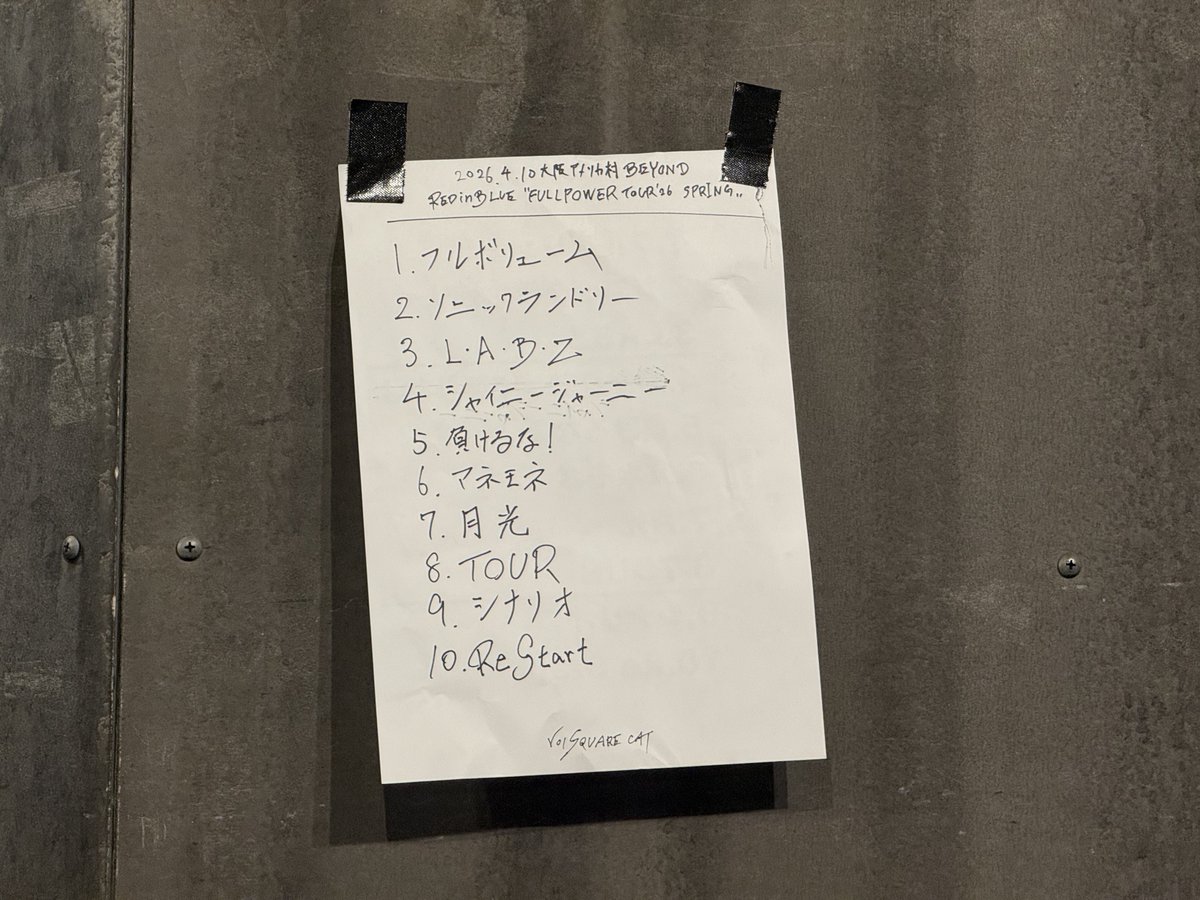 2026.4.10 大阪アメリカ村 BEYOND
REDinBLUE "FULLPOWER TOUR'26 SPRING"
1. フルボリューム
2. ソニックランドリー
3. L・A・B・Z
4. シャイニージャーニー
5. 負けるな!
6. マネモネ
7. 月光
8. TOUR
9. シナリオ
10. ReStart
VoiSQUARE CAT